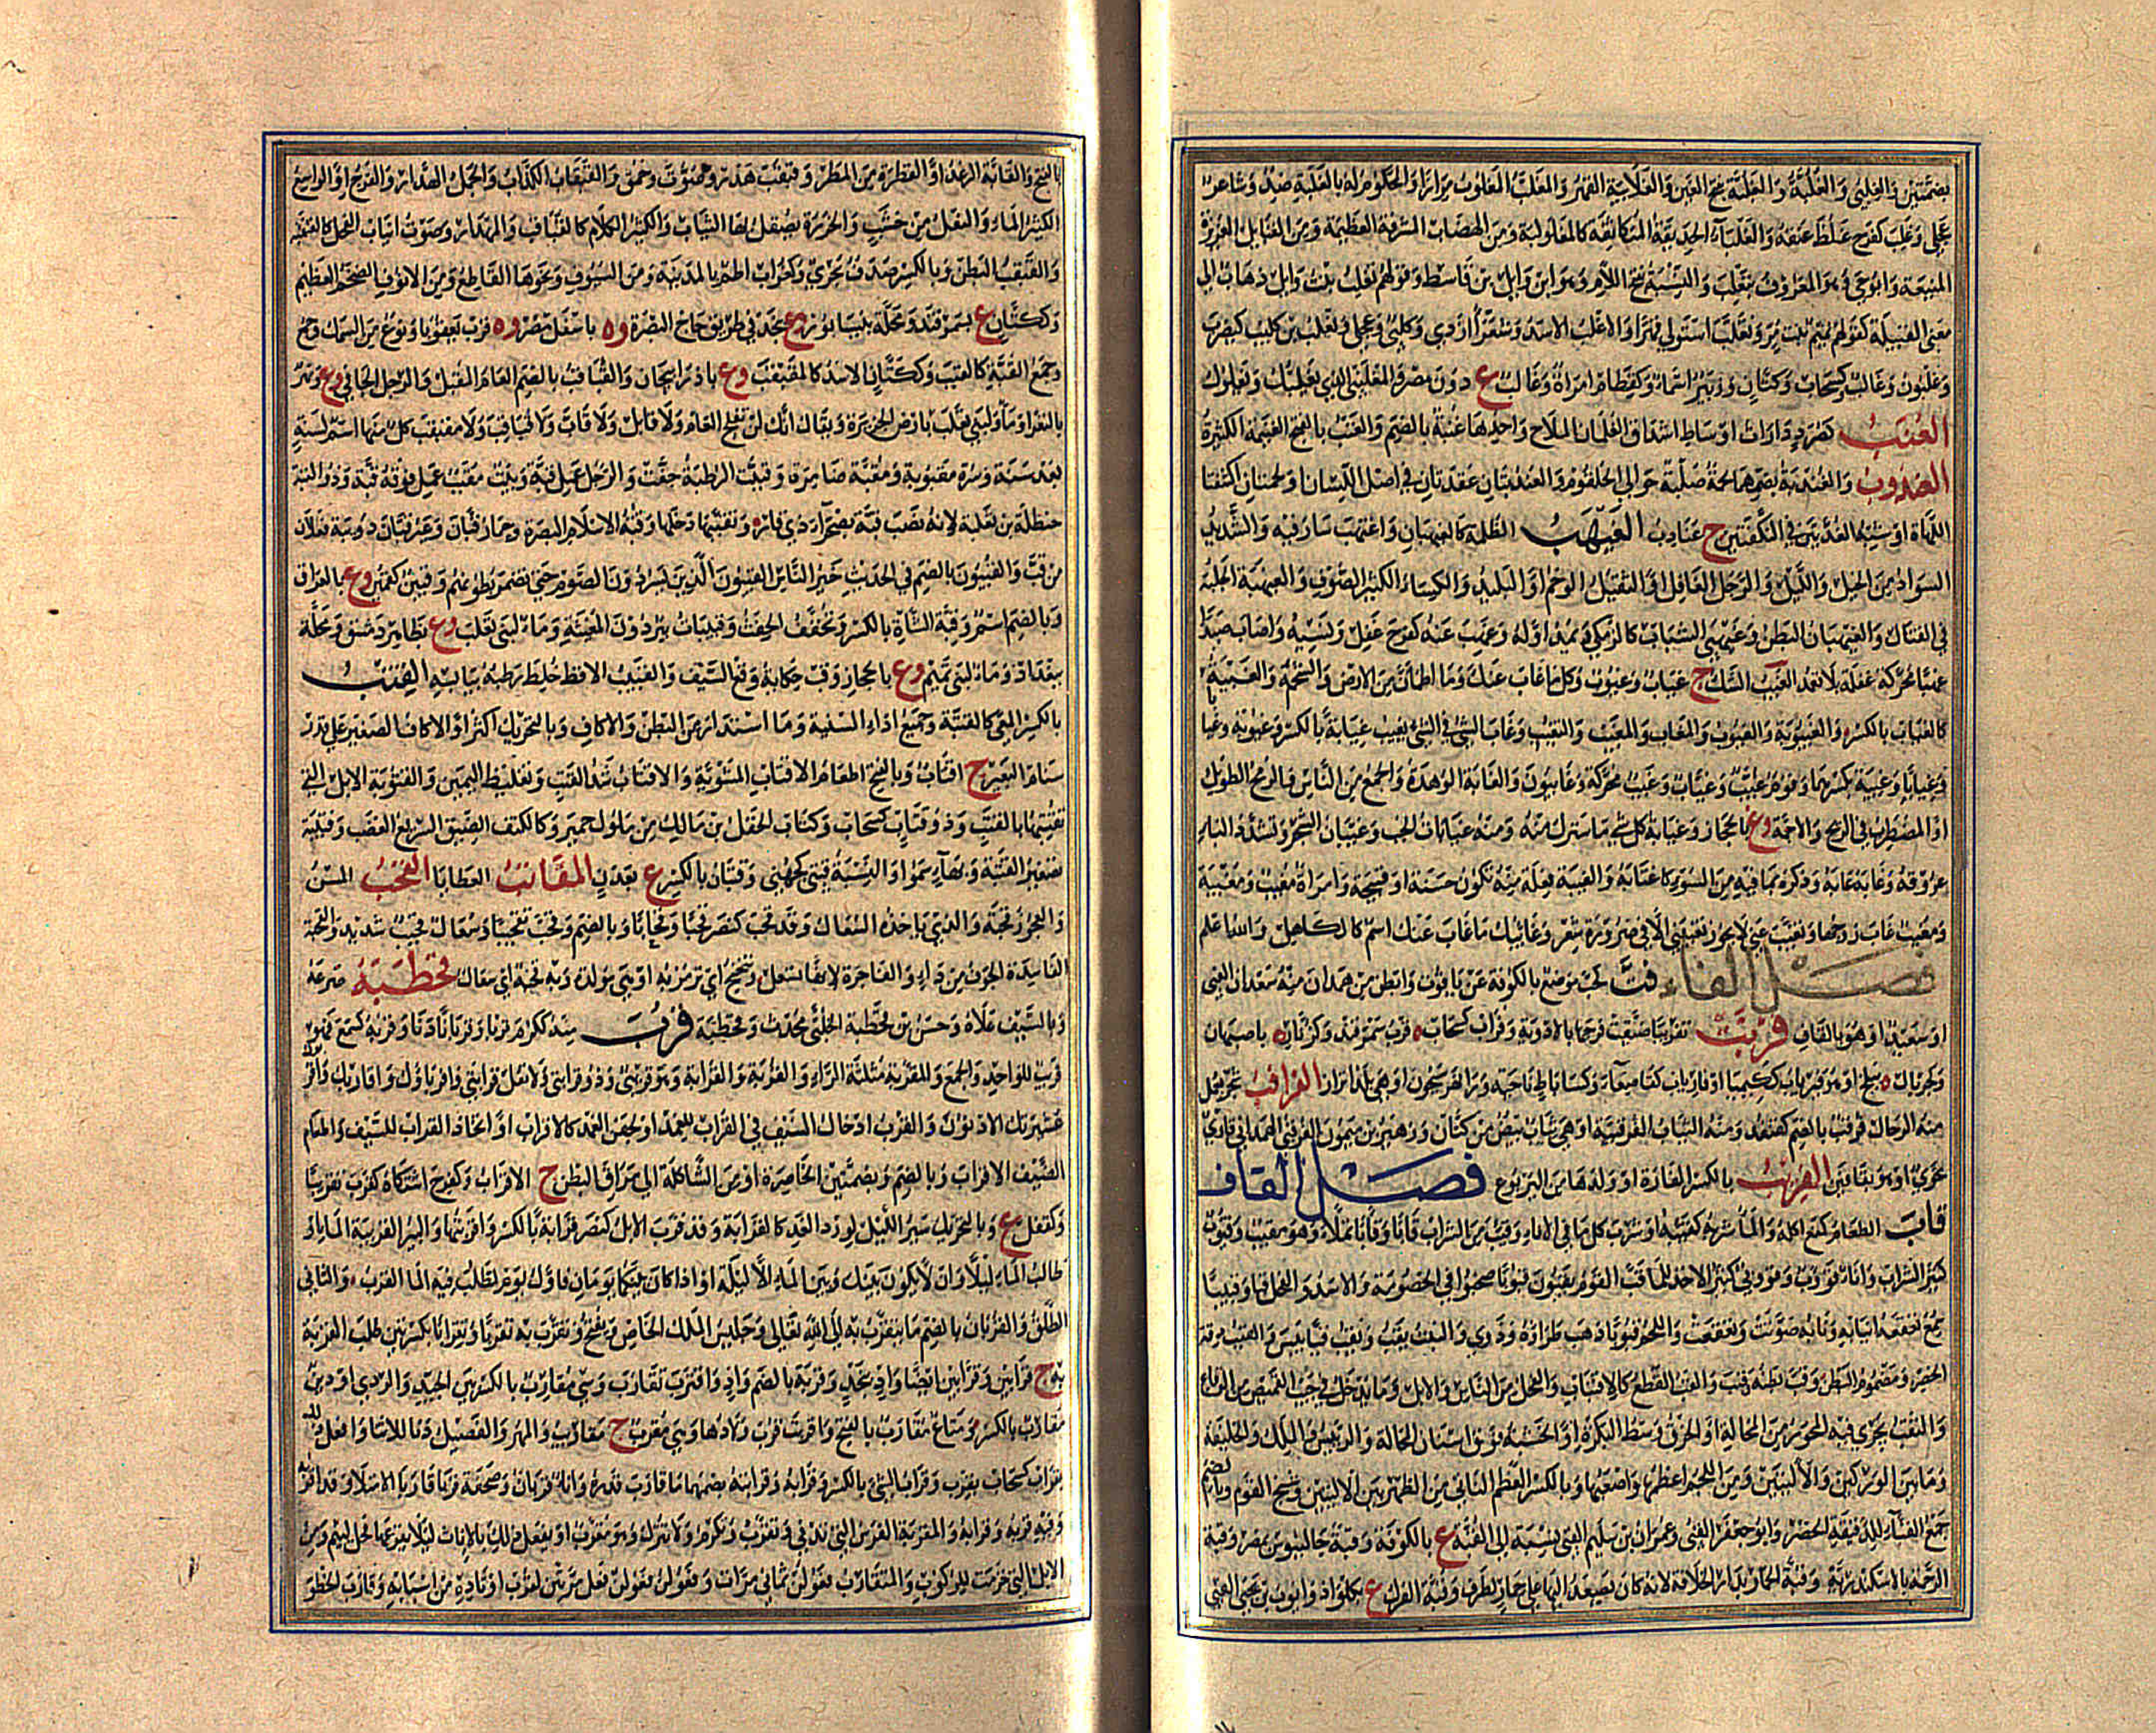 بضمتين والغلبى والغلبة والغلبة بفتح الغين والغلابية القهر والمغلب المغلوب مرارا والمحكوم له بالغلبة ضد وشاعر
عجلي وغلب كفرح غلظ عنقه والغلباء الحديقة المتكاثفة كالمغلولبة ومن الهضاب المشرفة العظيمة ومن القبائل العزيزة
المنيعة وابو حي وهو المعروف بتغلب والنسبة بفتح اللام وهو ابن وايل بن قاسط وقولهم تغلب بنت وايل ذهاب الى
معنى القبيلة كقولهم تميم بنت مر وتغلب استولى قهرا والاغلب الاسد وشعراء ازدي وكلبي وعجلي وتغلب بن كليب كيضرب
وغلبون وغالب كسحاب وكتان وزبير اسماء وكقطام امراة وغالب ع دون مصر والمغلنبي الذي يغلبك ويعلوك
الغنب كصرد دارات اوساط اشداق الغلمان الملاح واحدها غنبة بالضم والغنب بالفتح الغنيمة الكثيرة
الغندوب والغندبة بضمهما لحمة صلبة حوالي الحلقوم والغندبتان عقدتان في اصل اللسان او لحمتان اكتنفتا
اللهاة او شبه الغدتين في النكفتين ج غنادب الغيهب الظلمة كالغيهبان واغتهب سار فيه والشديد
السواد من الخيل والليل والرجل الغافل او الثقيل الوخم او البليد والكساء الكثير الصوف والغيهبة الجلبة
في القتال والغيهبان البطن وغيهبى الشباب كالزمكى ويمد اوله وغهب عنه كفرح غفل ونسيه واصاب صيدا
غهبا محركة غفلة بلا تعمد الغيب الشك ج غياب وغيوب وكل ما غاب عنك وما اطمان من الارض والشحمة والغيبة
كالغياب بالكسر والغيبوبة والغيوب والمغاب والمغيب والتغيب وغاب الشي في الشي يغيب غيابة بالكسر وغيوبة وغيا
وغيابا وغيبة بكسرهما وقوم غيب وغياب وغيب محركة وغايبون والغابة الوهدة والجمع من الناس والرمح الطويل
او المضطرب في الريح والاجمة وع بالحجاز وغيابة كل شي ما سترك منه ومنه غيابات الجب وغيبان الشجر وتشدد الياء
عروقه وغابه عابه وذكره بما فيه من السوء كاغتابه والغيبة فعلة منه تكون حسنة او قبيحة وامراة مغيب ومغيبة
ومغيب غاب زوجها وتغيب عني لا يجوز تغيبني الا في ضرورة شعر وغائبك ما غاب عنك اسم كالكاهل والله اعلم
فصل الفاء فت كحب موضع بالكوفة عن ياقوت وابطن من همدان منه سعدان الفبي
او سعيد او هو بالقاف فربت تفريبا ضيقت فرجها بالادوية وفراب كسحاب ه قرب سمرقند وكرمان ه باصبهان
وكجريال ه ببلخ او هو فيرياب ككيميا او فارياب كقاصعاء وكساباط ناحية وراء نهر سيحون او هي بلد اترار الفراقب تجر محل
منه الرحال فرقب بالضم كقنفد ومنه الثياب الفرقبية او هي ثياب بيض من كتان وزهير بن ميمون الفرقبي الهمداني قارئ
نحوي او هو بقافين الفرنب بالكسر الفارة او ولدها من اليربوع فصل القاف
قاب الطعام كمنع اكله والماء شربه كقئبه او شرب كل ما في الاناء وقئب من الشراب قابا وقابا تملا وهو مقاب وقؤوب
كثير الشراب واناء قوءب وقوءبي كثير الاخذ للماء قب القوم يقبون قبوبا صخبوا في الخصومة والاسد والفحل قبا وقبيبا
سمع قعقعة انيابه ونابه صوتت وتقعقعت واللحم قبوبا ذهب طراؤه وذوى والنبت يقب ويقب قبا يبس والقبب دقة
الخصر وضمور البطن وقب بطنه وقبب والقب القطع كالاقتباب والفحل من الناس والابل وما يدخل في جيب القميص من الرقاع
والثقب يجري فيه المحور من المحالة او الخرق وسط البكرة او الخشبة فوق اسنان المحالة والرئيس والملك والخليفة
وما بين الوركين والاليتين ومن اللجم اعظمها واصعبها وبالكسر العظم الناتي من الظهر بين الاليتين وشيخ القوم وبالضم
جمع القباء للدقيقة الخصر وابو جعفر القبي وعمران بن سليم القبي نسبة الى القبة ع بالكوفة وقبة جالينوس بمصر وقبة
الرحمة بالاسكندرية وقبة الحمار بدار الخلافة لانه كان يصعد اليها على حمار لطيف وقبة الفرك ع بكلواذ وايوب بن يحيى القبي
بالفتح والقابة الرعد او القطرة من المطر وقبقب هدر وصوت وحمق والقبقاب الكذاب والجمل الهدار والفرج او الواسع
الكثير الماء والنعل من خشب والخرزة يصقل بها الثياب والكثير الكلام كالقباقب والمهذار وصوت انياب الفحل كالقبقبة
والقبقب البطن وبالكسر صدف بحري وكغراب اطم بالمدينة ومن السيوف ونحوها القاطع ومن الانوف الضخم العظيم
وككتان ع بسمرقند ومحلة بنيسابور وع بنجد في طريق حاج البصرة وه باسفل مصر وه قرب بعقوبا ونوع من السمك وجمع
وجمع القبة كالقبب وككتان الاسد كالمقبقب وع باذربيجان والقباقب بالضم العام المقبل والرجل الجافي وع ونهر
بالثغر او ماء لبني تغلب بارض الجزيرة ويقال انك لن تفلح العام ولا قابل ولا قاب ولا قباقب ولا مقبقب كل منها اسم لسنة
بعد سنة وسرة مقبوبة ومقببة ضامرة وقبب الرطبة جفت والرجل عمل قبة وبيت مقبب عمل فوقه قبة وذو القبة
حنظلة بن ثعلبة لانه نصب قبة بصحراء ذي قار وتقببها دخلها وقبة الاسلام البصرة وحمار قبان وعير قبان دويبة فعلان
من قب والقبيون بالضم في الحديث خير الناس القبيون الذين يسردون الصوم حتى تضمر بطونهم وقبين كقمين وع بالعراق
وبالضم اسم وقبة الشاة بالكسر وتخفف الحفث وقبيبات بير دون المغيثة وماء لبني تغلب وع بظاهر دمشق ومحلة
ببغداد وماء لبني تميم وع بالحجاز وقب حكاية وقع السيف والقبيب الاقط خلط رطبه بيابسه القتب
بالكسر المعى كالقتبة وجميع اداة السانية وما استدار من البطن والاكاف وبالتحريك اكثر او الاكاف الصغير على قدر
سنام البعير ج اقتاب وبالفتح اطعام الاقتاب المشوية والاقتاب شد القتب وتغليظ اليمين والقتوبة الابل التي
تقتبها بالقتب وذو قتاب كسحاب وكتاب الحقل بن مالك من ملوك حمير وكالكتف الضيق السريع الغضب وقتيبة
تصغير القتبة وبهاء سموا والنسبة قتبي كجهني وقتبان بالكسر ع بعدن المقانب العطايا القحب المسن
والعجوز قحبة والذي ياخذه السعال وقد قحب كنصر قحبا وقحابا وبالضم وقحب تقحيبا وسعال قاحب شديد والقحبة
الفاسدة الجوف من داء والفاجرة لانها تسعل وتنحنح اي ترمز به او هي مولدة وبه قحبة اي سعال قحطبه صرعه
وبالسيف علاه وحسن بن قحطبة الجلئي محدث وقحطبة قرب منه ككرم قربا وقربانا دنا وقربه كسمع فهو
قريب للواحد والجمع والمقربة مثلثة الراء والقربة والقرابة وهو قريبي وذو قرابتي ولا تقل قرابتي واقرباؤك واقاربك واقر
عشيرتك الادنون والقرب ادخال السيف في القراب للغمد او لجفن الغمد كالاقراب او اتخاذ القراب للسيف واطعام
الضيف الاقراب وبالضم وبضمتين الخاصرة او من الشاكلة الى مراق البطن ج الاقراب وكفرح اشتكاه كقرب تقريبا
وكقفل ع وبالتحريك سير الليل لورد الغد كالقرابة وقد قرب الابل كنصر قرابة بالكسر واقربتها والبير القريبة الماء او
طالب الماء ليلا وان لا يكون بينك وبين الماء الا ليلة او اذا كان بينكما يومان فاول يوم تطلب فيه الماء القرب والثاني
الطلق والقربان بالضم ما يتقرب به الى الله تعالى وجليس الملك الخاص ويفتح وتقرب به تقربا وتقرابا بكسرتين طلب القربة
به ج قرابين وقرابين ايضا واد بنجد وقربة بالضم واد واقترب تقارب وشي مقارب بالكسر بين الجيد والردي او دين
مقارب بالكسر ومتاع مقارب بالفتح واقربت قرب ولادها وهي مقرب ج مقاريب والمهر والفصيل دنا للاثناء وافعل ذلك
بقراب كسحاب بقرب وقراب الشي بالكسر وقرابه وقرابته بضمهما ما قارب قدره واناء قربان وصحفة قربى قاربا الامتلاء وقد اقربه
وفيه قربه وقرابه والمقربة الفرس التي تدنى وتقرب وتكرم ولا تترك وهو مقرب او يفعل ذلك بالاناث ليلا يقرعها فحل لئيم ومن
الابل التي حزمت للركوب والمتقارب فعولن ثماني مرات وفعولن فعولن فعل مرتين لقرب اوتاده من اسبابه وقارب الخطو